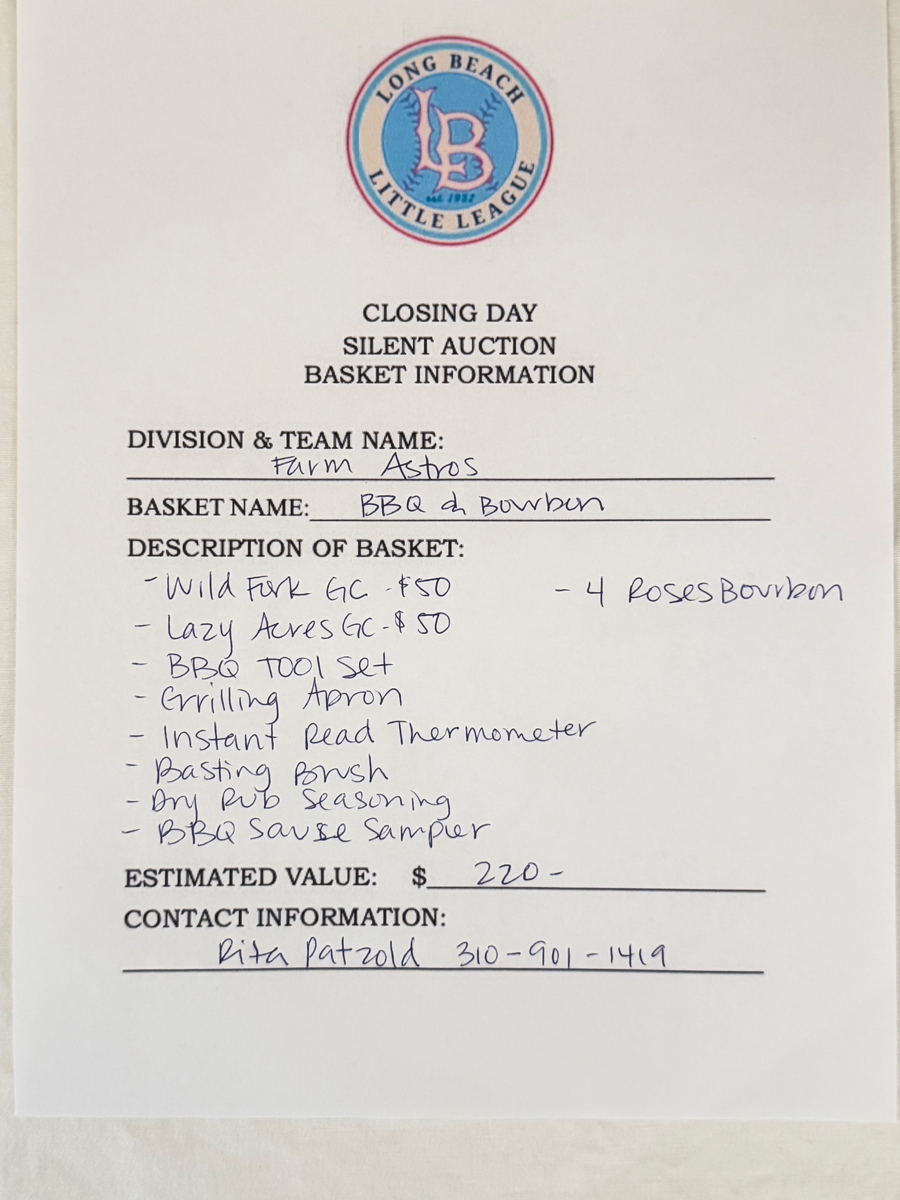 LONG BEACH
LB
est. 1952
LITTLE LEAGUE
CLOSING DAY
SILENT AUCTION
BASKET INFORMATION
DIVISION & TEAM NAME:
Farm Astros
BASKET NAME: BBQ & Bourbon
DESCRIPTION OF BASKET:
- Wild Fork GC - $50
- 4 Roses Bourbon
- Lazy Acres GC - $50
- BBQ Tool Set
- Grrilling Apron
- Instant Read Thermometer
- Basting Brush
- Dry Rub Seasoning
- BBQ Sause Sampler
ESTIMATED VALUE: $ 220-
CONTACT INFORMATION:
Rita Patzold 310-901-1419